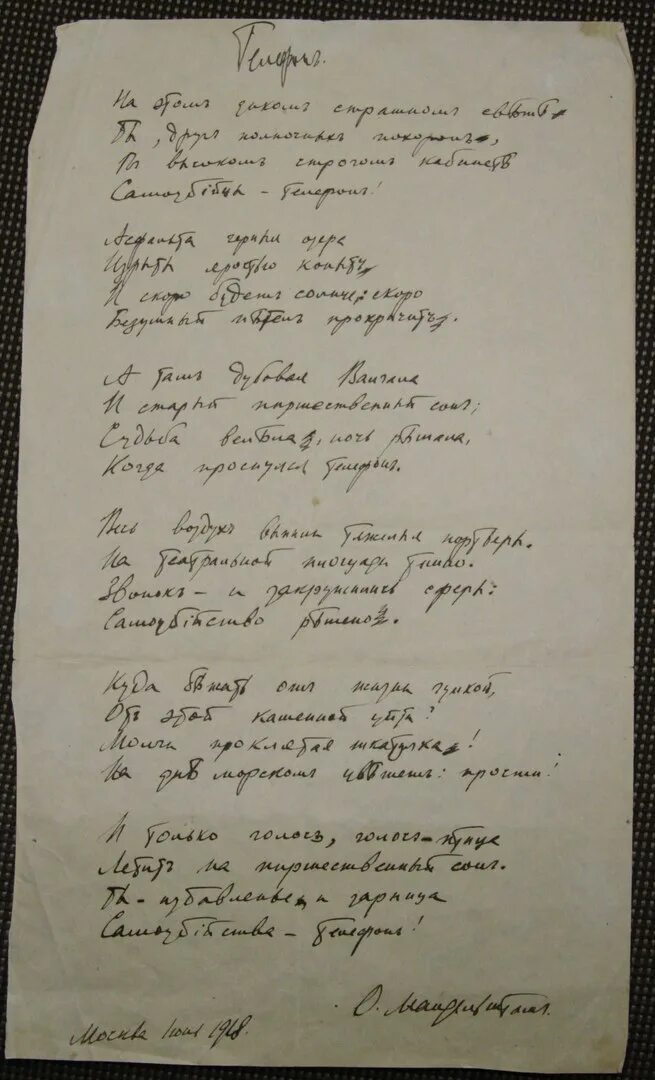 Телефонъ.
На этомъ дикомъ страшномъ свѣтѣ
Ты, другъ полночныхъ похоронъ,
Въ высокомъ строгомъ кабинетѣ
Самоубійцы – телефонъ!
Асфальта черныя озера
Изрыты яростью копытъ,
И скоро будетъ солнце: скоро
Безумный пѣтелъ прокричитъ.
А тамъ дубовая Валгала
И старый пиршественный сонъ;
Судьба велѣла, ночь рѣшала,
Когда проснулся телефонъ.
Весь воздухъ выпили тяжелыя портьеры.
На театральной площади темно.
Звонокъ – и закружились сферы:
Самоубійство рѣшено.
Куда бѣжать отъ жизни гулкой,
Отъ этой каменной уйти?
Молчи проклятая шкатулка!
На днѣ морскомъ цвѣтетъ: прости!
И только голосъ, голосъ-птица
Летитъ на пиршественный сонъ.
Ты – избавленье и зарница
Самоубійства – телефонъ!
О. Мандельштамъ.
Москва Іюнь 1918.